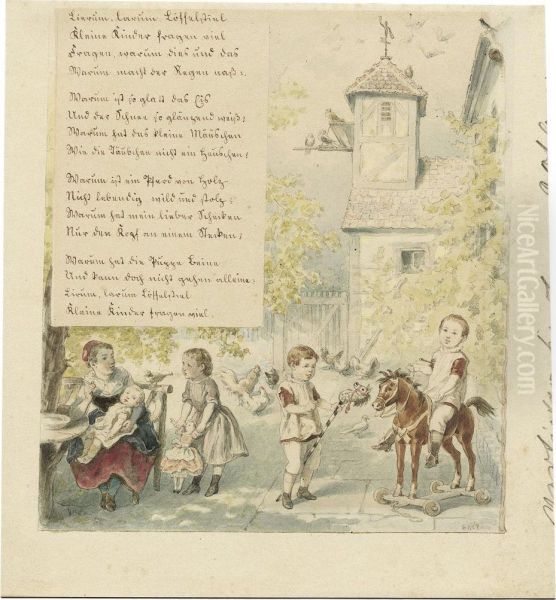 Lierum, larum Löffelstiel
Kleine Kinder fragen viel
Fragen, warum dies und das
Warum macht der Regen naß?
Warum ist so glatt das Eis
Und der Schnee so glänzend weiß?
Warum hat das kleine Mäuschen
Wie die Täubchen nicht ein Häuschen?
Warum ist ein Pferd von Holz
Nicht lebendig wild und stolz?
Warum hat mein lieber Schecken
Nur den Kopf an einem Stecken?
Warum hat die Puppe Beine
Und kann doch nicht gehen alleine?
Lirum, larum Löffelstiel
Kleine Kinder fragen viel.
NiceArtGallery.com